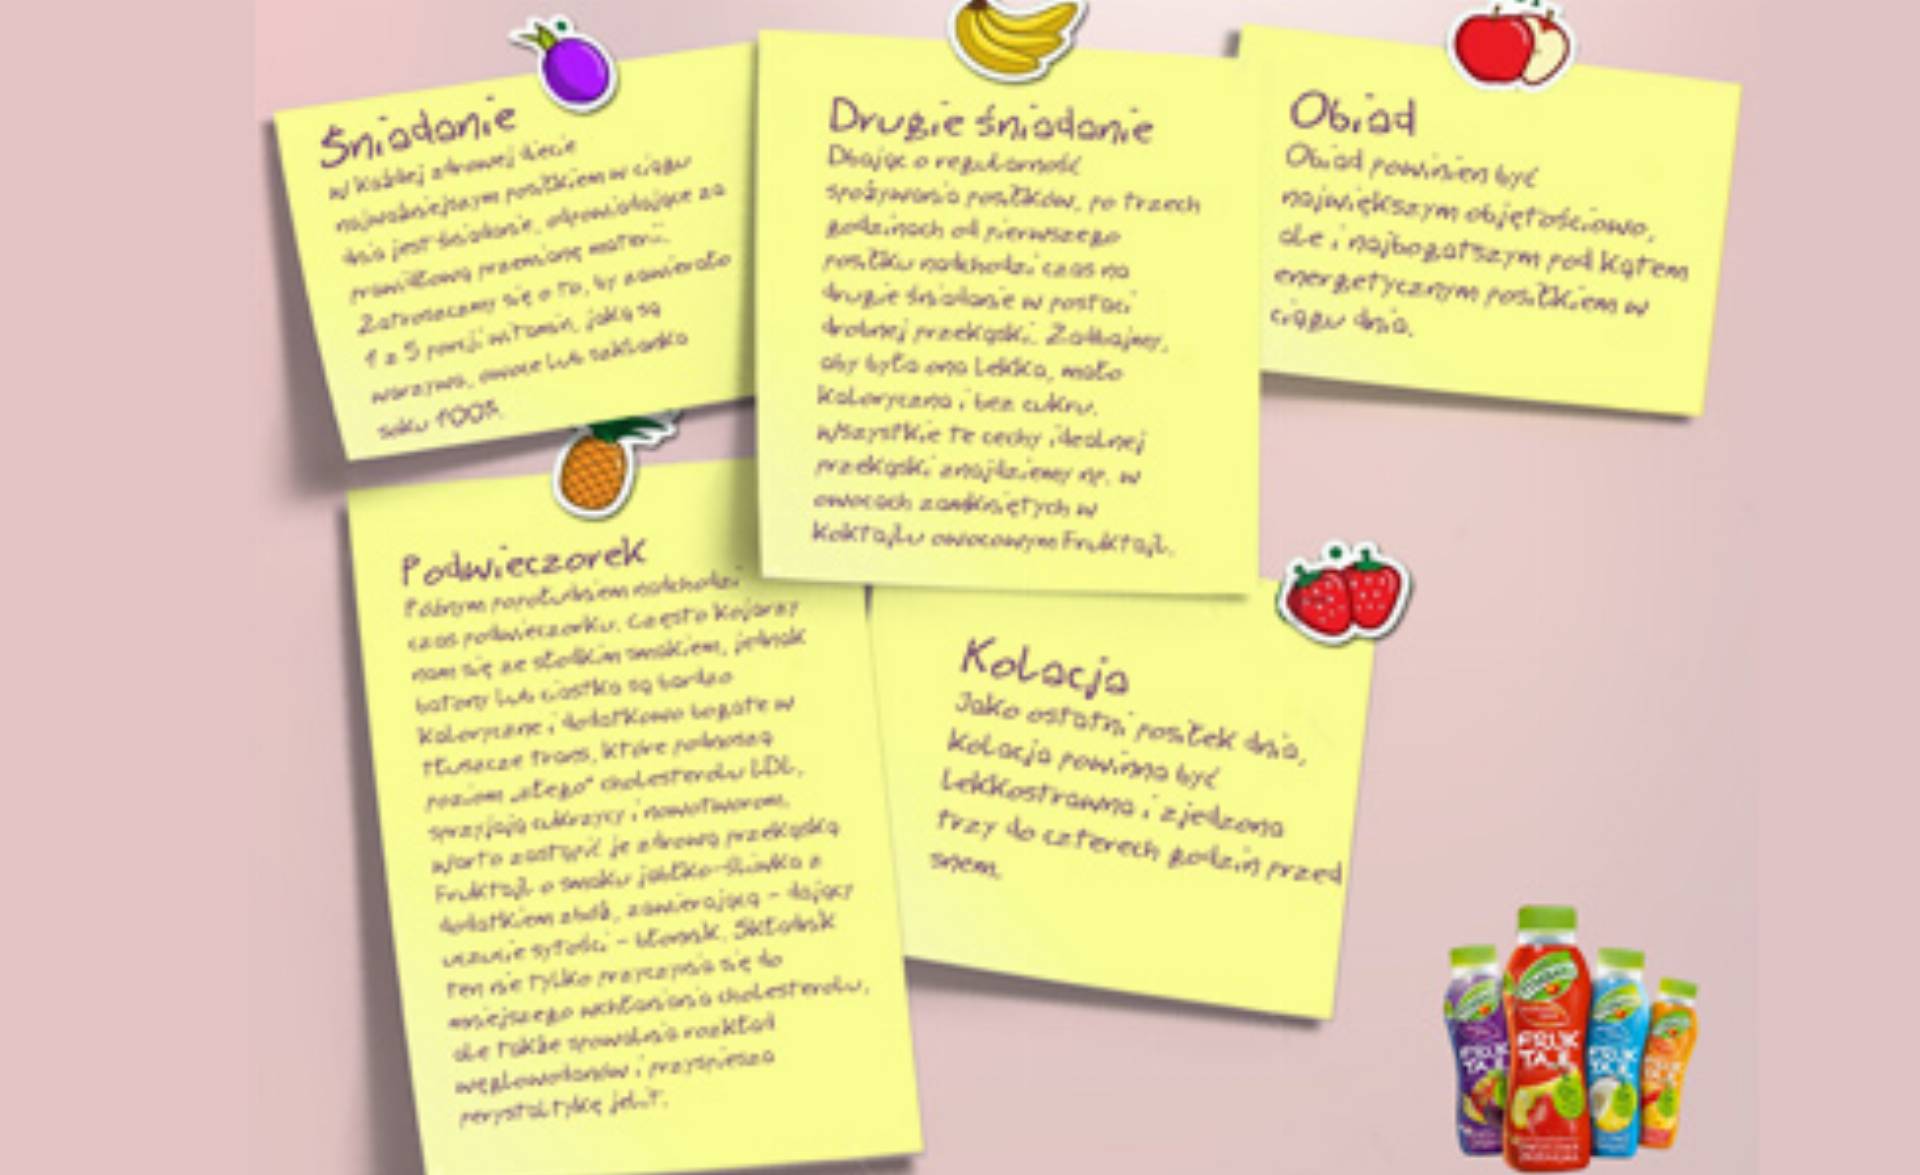 Śniadanie
W każdej zdrowej diecie
najważniejszym posiłkiem w ciągu
dnia jest śniadanie, odpowiadające za
prawidłową przemianę materii.
Zatroszczmy się o to, by zawierało
1 z 5 porcji witamin, jaką są
warzywa, owoce lub szklanka
soku 100%.
Drugie śniadanie
Dbając o regularność
spożywania posiłków, po trzech
godzinach od pierwszego
posiłku nadchodzi czas na
drugie śniadanie w postaci
drobnej przekąski. Zadbajmy,
aby była ona lekka, mało
kaloryczna i bez cukru.
Wszystkie te cechy idealnej
przekąski znajdziemy np. w
owocach zamkniętych w
koktajlu owocowym Fruktajl.
Obiad
Obiad powinien być
największym objętościowo,
ale i najbogatszym pod kątem
energetycznym posiłkiem w
ciągu dnia.
Podwieczorek
Późnym popołudniem nadchodzi
czas podwieczorku. Często kojarzy
nam się ze słodkim smakiem, jednak
batony lub ciastka są bardzo
kaloryczne i dodatkowo bogate w
tłuszcze trans, które podnoszą
poziom „złego" cholesterolu LDL,
sprzyjają cukrzycy i nowotworom.
Warto zastąpić je zdrową przekąską
Fruktajl o smaku jabłko-śliwka z
dodatkiem zbóż, zawierającą - dający
uczucie sytości - błonnik. Składnik
ten nie tylko przyczynia się do
mniejszego wchłaniania cholesterolu,
ale także spowalnia rozkład
węglowodanów i przyspiesza
perystaltykę jelit.
Kolacja
Jako ostatni posiłek dnia,
kolacja powinna być
lekkostrawna i zjedzona
trzy do czterech godzin przed
snem.
FRUK
TAJL
FRUK
TAJL
FRUK
TAJL
FRUK
TAJL